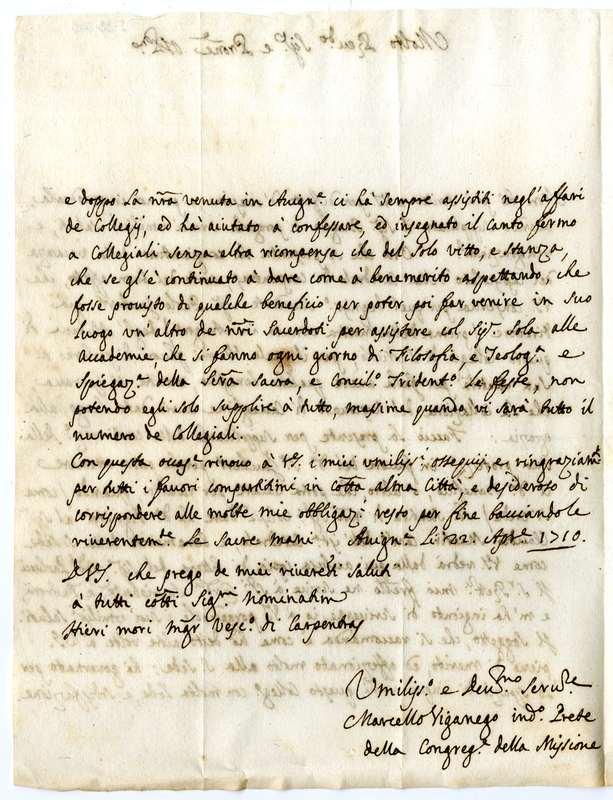 e doppo la nr̃a venuta in Auign.e ci hà sempre assistiti negl'affari
de Collegij, ed hà aiutato à confessare, ed insegnato il canto fermo
a Collegiali senza altra ricompensa che del solo vitto, e stanza,
che se gl'è continuato à dare come à benemerito aspettando, che
fosse provisto di qualche beneficio per poter poi far venire in suo
luogo un'altro de nr̃i sacerdoti per assistere col Sig.r Sola alle
Accademie, che si fanno ogni giorno di Filosofia, e Teolog.a e
spiegaz.e della Scr̃a sacra, e Concil.o Trident.o le feste, non
potendo egli solo supplire à tutto, massime quando vi sarà tutto il
numero de Collegiali.
Con questa occas.e rinovo à V.S. i miei umiliss.i ossequij, e ringraziam.ti
per tutti i fauori compartitimi in cotta alma Città, e desideroso di
corrispondere alle molte mie obbligaz.i resto per fine bacciandole
riverentem.te le sacre mani Auign.e li 22. Apr.e 1710.
D.V.S. che prego de miei riverẽti saluti
à tutti cotti Sig.ri nominatim
Hieri morì Mg̃r Vesc.o di Carpentras
Umiliss.o e Deu.mo Seru.re
Marcello Viganego ind.o Prete
della Congreg.e della Missione